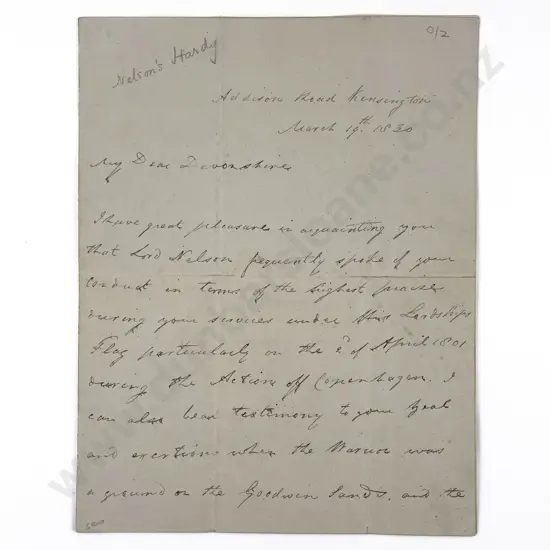 0/2
Nelson's Hardy
Addison Road Kensington
March 19th. 1830
My Dear Devonshire
I have great pleasure in acquainting you
that Lord Nelson frequently spoke of your
conduct in terms of the highest praise
during your services under His Lordships
Flag particularly on the 2d of April 1801
during the Action off Copenhagen. I
can also bear testimony to your Zeal
and exertions when the was
a ground on the Goodwin Sands, and the